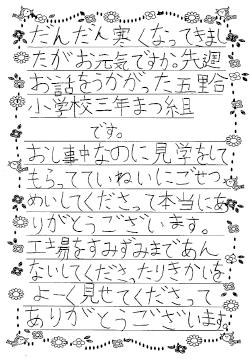 だんだん寒くなってきまし
たがお元気ですか。先週
お話をうかがった五里合
小学校三年まつ組
です。
おし事中なのに見学をして
もらってていねいにごせつ
めいしてくださって本当にあ
りがとうございます。
工場をすみずみまであん
ないしてくださったりきかいを
よーく見せてくださって
ありがとうございます。